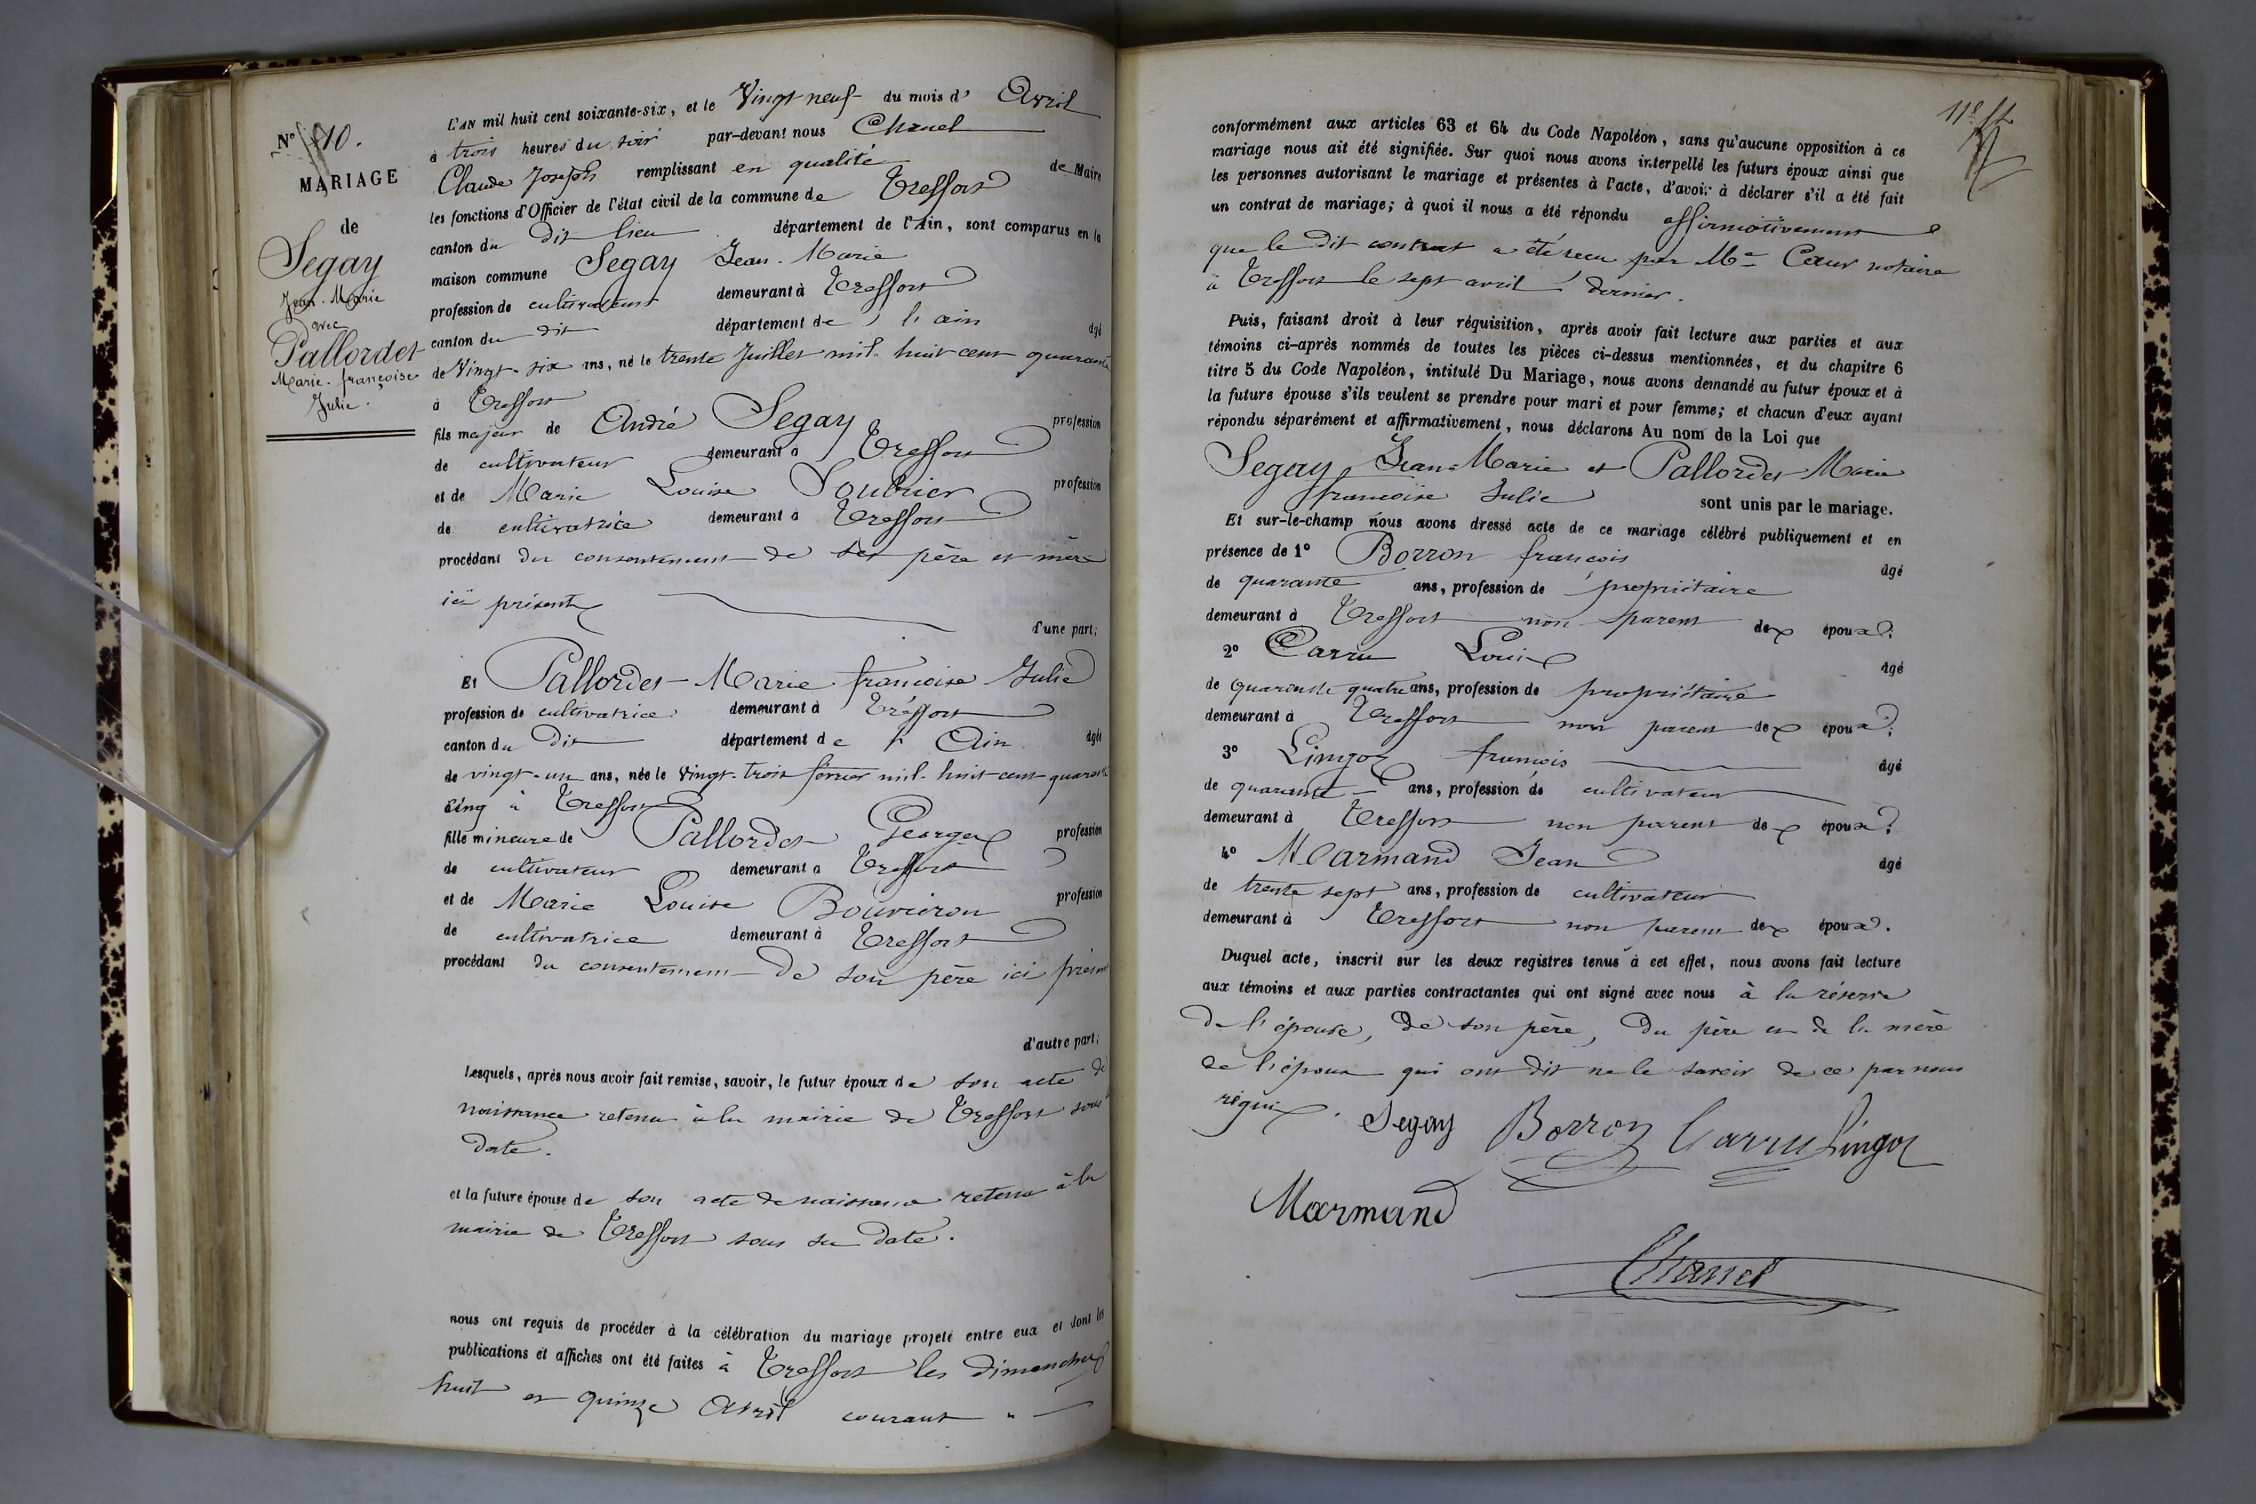 N° 10.
MARIAGE
de
Segay
Jean-Marie
avec
Pallordet
Marie-françoise
Julie.
L'AN mil huit cent soixante-six, et le Vingt neuf du mois d' Avril
à trois heures du soir par-devant nous Chanel
Claude Joseph remplissant en qualité de Maire
les fonctions d'Officier de l'état civil de la commune de Treffort
canton du dit lieu département de l'Ain, sont comparus en la
maison commune Segay Jean-Marie
profession de cultivateur demeurant à Treffort
canton du dit département de l'ain âgé
de Vingt-six ans, né le trente Juillet mil huit cent quarante
à Treffort
fils majeur de André Segay profession
de cultivateur demeurant à Treffort
et de Marie Louise Soubrier profession
de cultivatrice demeurant à Treffort
procédant du consentement de ses père et mère
ici présents
d'une part;
Et Pallordet Marie françoise Julie
profession de cultivatrice demeurant à Treffort
canton du dit département de l'Ain âgée
de vingt-un ans, née le Vingt-trois février mil huit cent quarante
cinq à Treffort
fille mineure de Pallordet Georges profession
de cultivateur demeurant à Treffort
et de Marie Louise Bouvieron profession
de cultivatrice demeurant à Treffort
procédant du consentement de son père ici présent
d'autre part;
Lesquels, après nous avoir fait remise, savoir, le futur époux de son acte de
naissance retenu à la mairie de Treffort sous
date.
et la future épouse de son acte de naissance retenu à la
mairie de Treffort sous sa date.
nous ont requis de procéder à la célébration du mariage projeté entre eux et dont les
publications et affiches ont été faites à Treffort les dimanches
huit et quinze Avril courant
11e
conformément aux articles 63 et 64 du Code Napoléon, sans qu'aucune opposition à ce
mariage nous ait été signifiée. Sur quoi nous avons interpellé les futurs époux ainsi que
les personnes autorisant le mariage et présentes à l'acte, d'avoir à déclarer s'il a été fait
un contrat de mariage; à quoi il nous a été répondu affirmativement
que le dit contrat a été reçu par Me Cœur notaire
à Treffort le sept avril dernier.
Puis, faisant droit à leur réquisition, après avoir fait lecture aux parties et aux
témoins ci-après nommés de toutes les pièces ci-dessus mentionnées, et du chapitre 6
titre 5 du Code Napoléon, intitulé Du Mariage, nous avons demandé au futur époux et à
la future épouse s'ils veulent se prendre pour mari et pour femme; et chacun d'eux ayant
répondu séparément et affirmativement, nous déclarons Au nom de la Loi que
Segay Jean-Marie et Pallordet Marie
françoise Julie sont unis par le mariage.
Et sur-le-champ nous avons dressé acte de ce mariage célébré publiquement et en
présence de 1° Borron françois âgé
de quarante ans, profession de propriétaire
demeurant à Treffort non parent des époux;
2° Carru Louis âgé
de quarante quatre ans, profession de propriétaire
demeurant à Treffort non parent des époux;
3° Lingoz françois âgé
de quarante ans, profession de cultivateur
demeurant à Treffort non parent des époux;
4° Marmand Jean âgé
de trente sept ans, profession de cultivateur
demeurant à Treffort non parent des époux.
Duquel acte, inscrit sur les deux registres tenus à cet effet, nous avons fait lecture
aux témoins et aux parties contractantes qui ont signé avec nous à la réserve
De l'épouse, de son père, du père et de la mère
de l'époux qui ont dit ne le savoir de ce par nous
réquis. Segay Borron Carru Lingoz
Marmand
Chanel